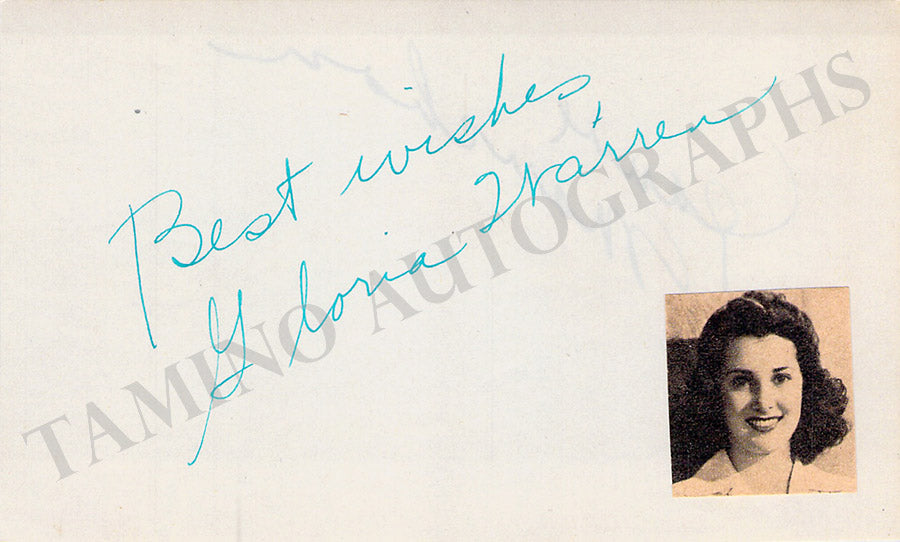 Best wishes
Gloria Warren
TAMINO AUTOGRAPHS